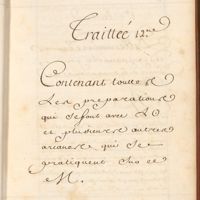 Traittée 12.me
Contenant toutte s
Les preparations
qui se font avec L'O
et plusieurs autres
arcanes qui se
pratiquent sur ce
M.